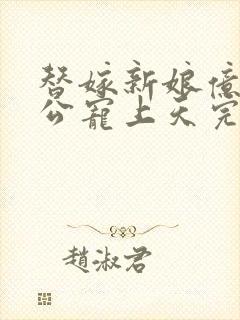 替嫁新娘億
公寵上天完
趙淑君